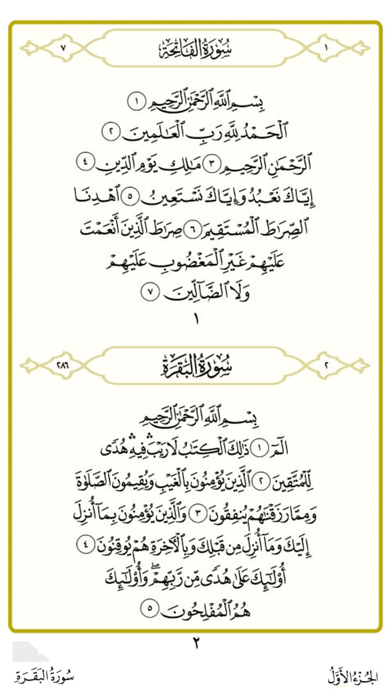 ٧ سُورَةُ الفَاتِحَةِ ١
بِسْمِ ٱللَّهِ ٱلرَّحْمَٰنِ ٱلرَّحِيمِ ١
ٱلْحَمْدُ لِلَّهِ رَبِّ ٱلْعَٰلَمِينَ ٢
ٱلرَّحْمَٰنِ ٱلرَّحِيمِ ٣ مَٰلِكِ يَوْمِ ٱلدِّينِ ٤
إِيَّاكَ نَعْبُدُ وَإِيَّاكَ نَسْتَعِينُ ٥ ٱهْدِنَا
ٱلصِّرَٰطَ ٱلْمُسْتَقِيمَ ٦ صِرَٰطَ ٱلَّذِينَ أَنْعَمْتَ
عَلَيْهِمْ غَيْرِ ٱلْمَغْضُوبِ عَلَيْهِمْ
وَلَا ٱلضَّآلِّينَ ٧
١
٢٨٦ سُورَةُ البَقَرَةِ ٢
بِسْمِ ٱللَّهِ ٱلرَّحْمَٰنِ ٱلرَّحِيمِ
الٓمٓ ١ ذَٰلِكَ ٱلْكِتَٰبُ لَا رَيْبَ ۛ فِيهِ ۛ هُدًى
لِّلْمُتَّقِينَ ٢ ٱلَّذِينَ يُؤْمِنُونَ بِٱلْغَيْبِ وَيُقِيمُونَ ٱلصَّلَوٰةَ
وَمِمَّا رَزَقْنَٰهُمْ يُنفِقُونَ ٣ وَٱلَّذِينَ يُؤْمِنُونَ بِمَآ أُنزِلَ
إِلَيْكَ وَمَآ أُنزِلَ مِن قَبْلِكَ وَبِٱلْءَاخِرَةِ هُمْ يُوقِنُونَ ٤
أُو۟لَٰٓئِكَ عَلَىٰ هُدًى مِّن رَّبِّهِمْ ۖ وَأُو۟لَٰٓئِكَ
هُمُ ٱلْمُفْلِحُونَ ٥
٢
سُورَةُ البَقَرَةِ الجُزْءُ الأَوَّلُ